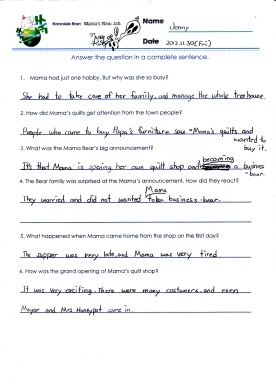 Berenstain Bears Mama's New Job
Name Jenny
Date 2012.11.30(Fri)
Answer the question in a complete sentence.
1. Mama had just one hobby. But why was she so busy?
She had to take care of her family, and manage the whole treehouse.
2. How did Mama's quilts get attention from the town people?
People who came to buy Papa's furniture saw Mama's quilts and wanted to
buy it.
3. What was the Mama Bear's big announcement?
It's that Mama is opening her own quilt shop and becoming a business
-bear.
4. The Bear family was surprised at the Mama's announcement. How did they react?
They worried and did not wanted Mama to be business-bear.
5. What happened when Mama came home from the shop on the first day?
The supper was very late, and Mama was very tired
6. How was the grand opening of Mama's quilt shop?
It was very exciting. There were many costumers, and even
Mayor and Mrs. Honeypot came in.